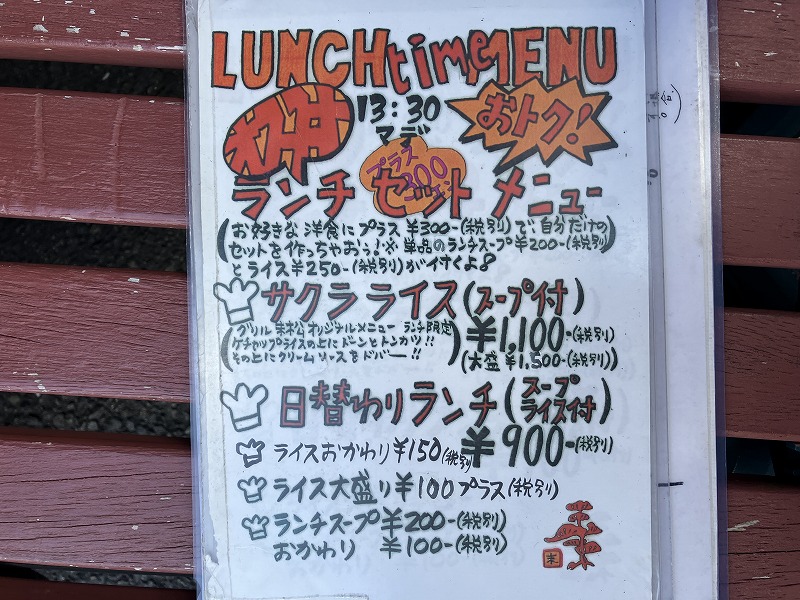 LUNCHtimeMENU
13:30
マデ
おトク!
プラス
300
ランチ セット メニュー
(お好きな洋食にプラス ¥300-(税別)で、自分だけの
セットを作っちゃおう!※単品のランチスープ¥200-(税別)
とライス¥250-(税別)が付くよ)
サクラライス(スープ付)
(グリル末松オリジナルメニュー ランチ限定
ケチャップライスの上にドーンとトンカツ!!
その上にクリームソースをドバー!!)
¥1,100-(税別)
(大盛¥1,500-(税別))
日替わりランチ(スープ
ライス付)
¥900-(税別)
ライスおかわり¥150(税別)
ライス大盛り¥100プラス(税別)
ランチスープ¥200-(税別)
おかわり ¥100-(税別)